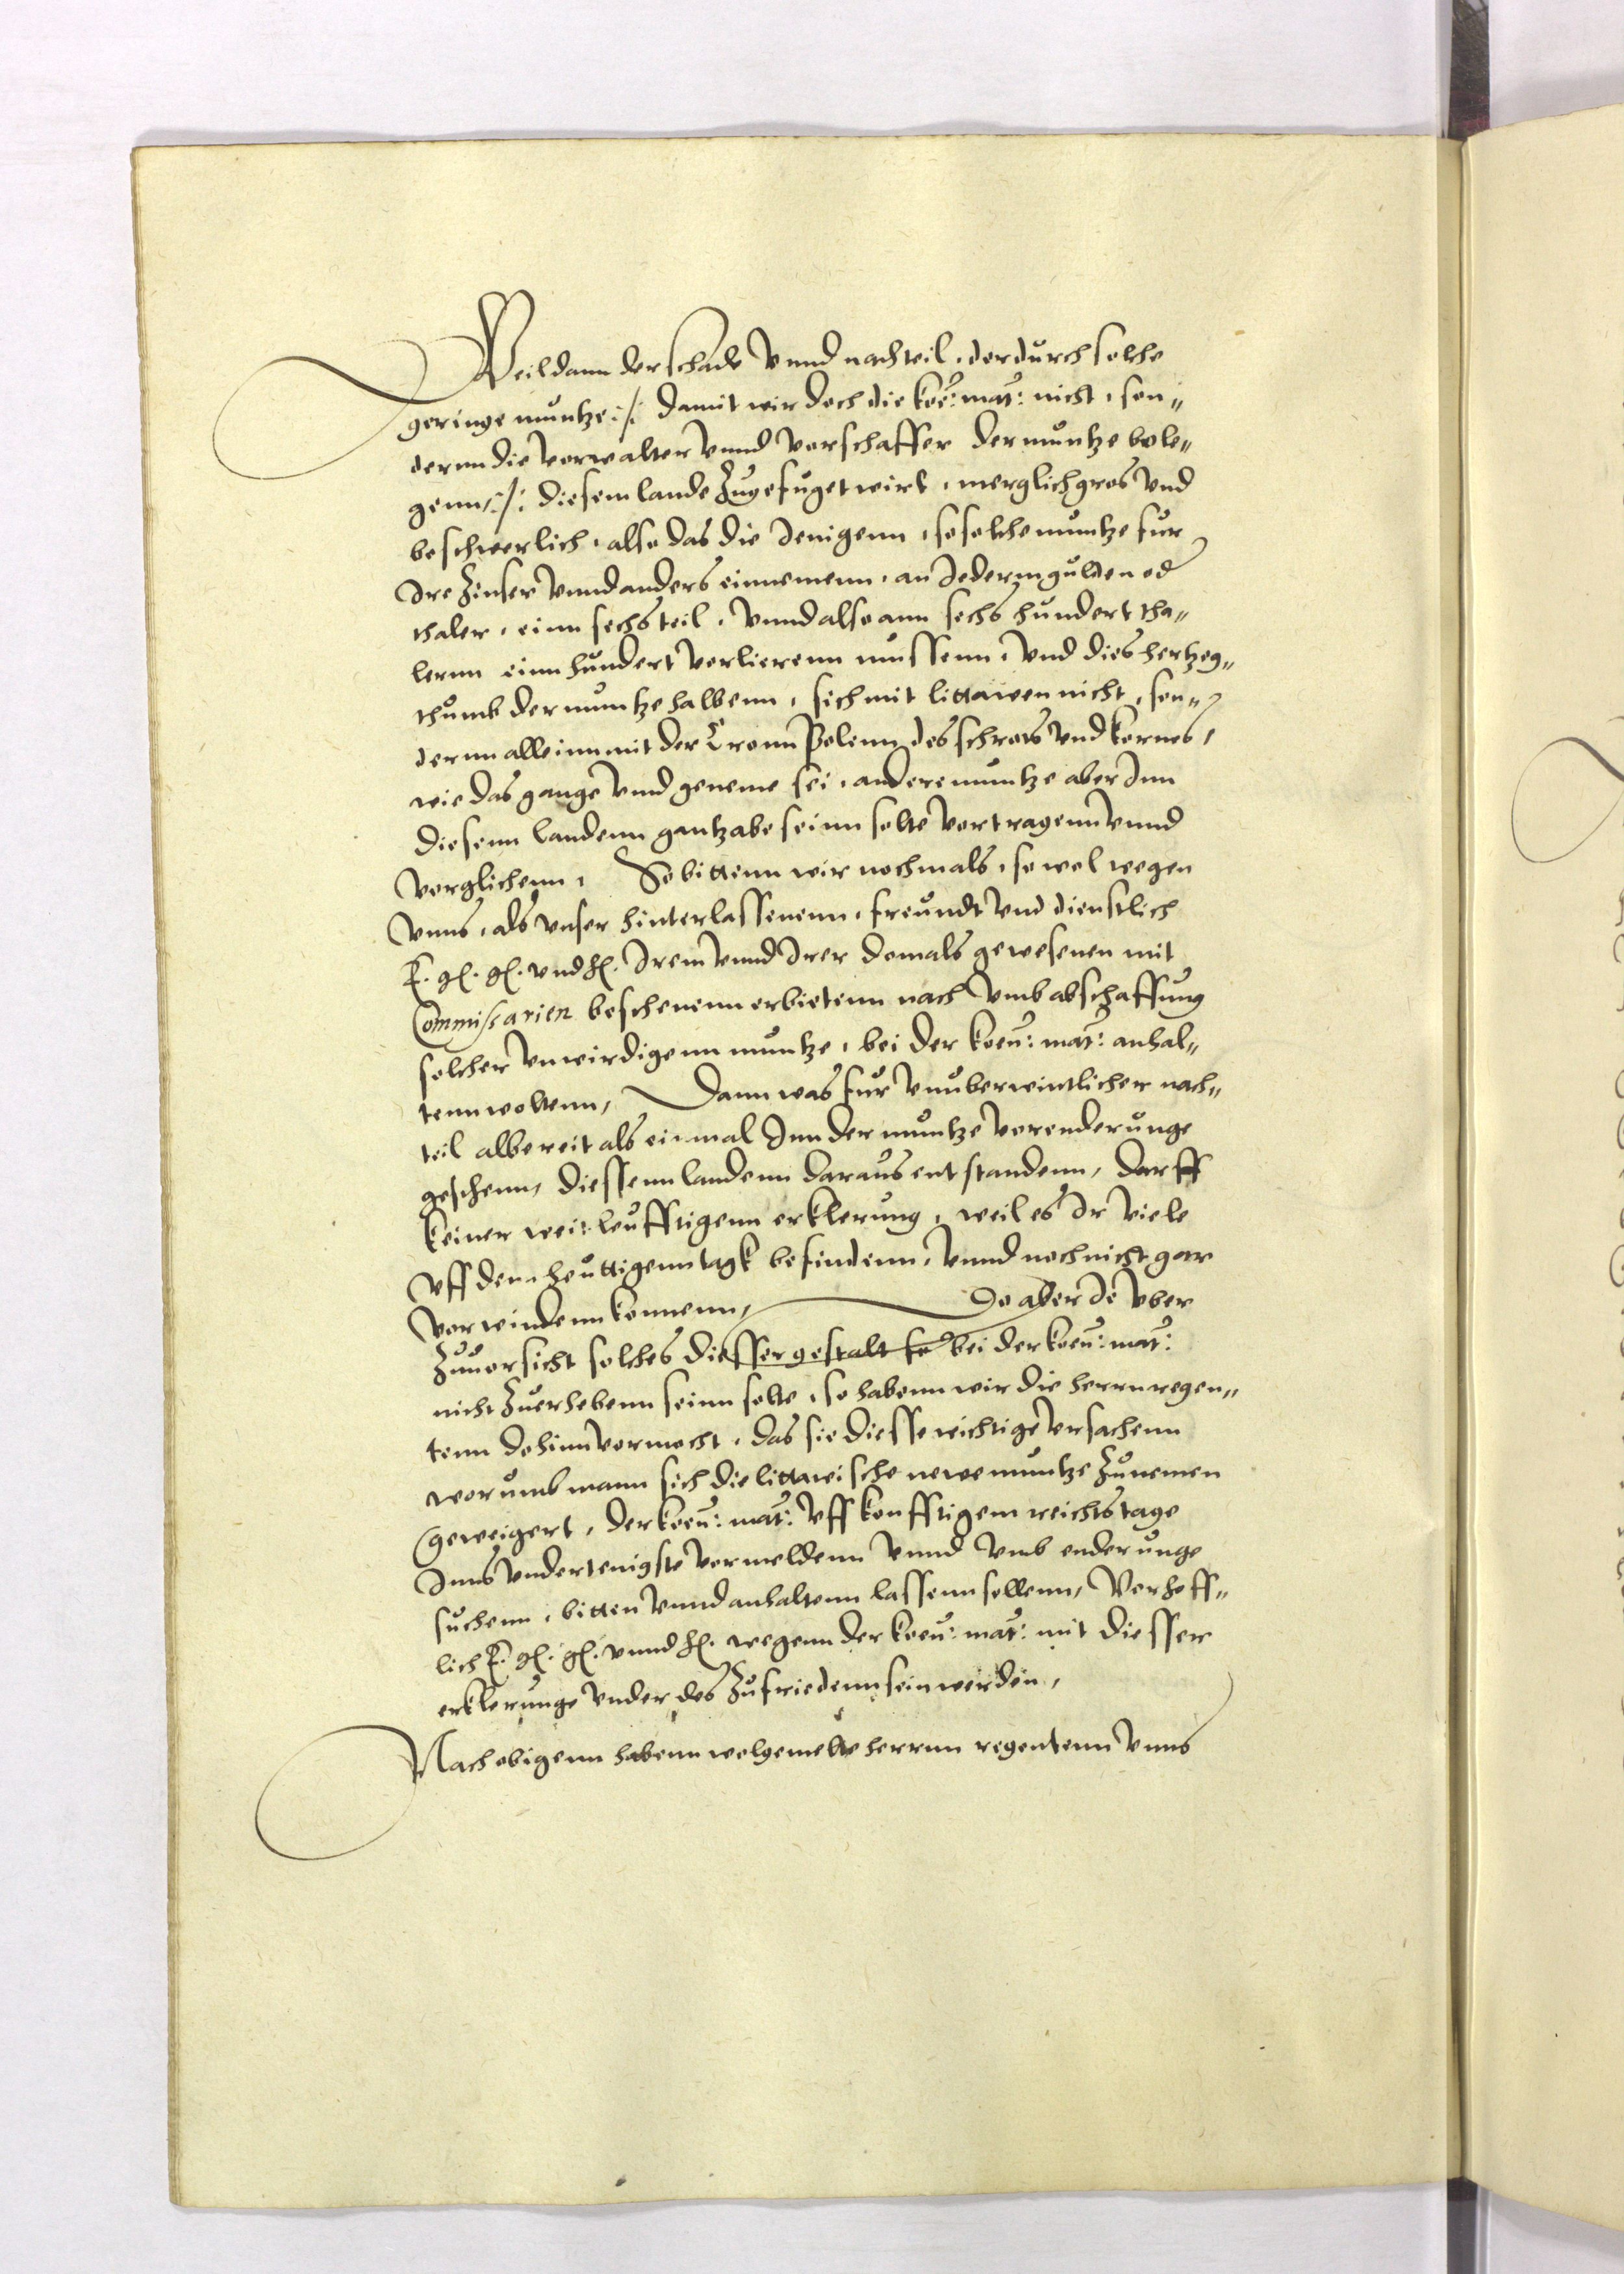 Weil dann der schade vnnd nachteil, der durch solche
geringe muntze :/: damit wir doch die koe: mat: nicht, son„
dernn die vorwalter vnnd vorschaffer der muntze bele„
genn :/: diesem lande zugefuget wirt, merglich gros vnd
beschwerlich, also das die Jenigenn, so solche muntze fur
Ire zinser vnnd anders einnemenn, an Jederm gulden od
thaler, einn sechsteil, vnnd also ann sechs hundert tha„
lernn einn hundert verlierenn mussenn, vnd dies hertzog„
thumb der muntze halbenn, sich mit littawen nicht, son„
dernn alleinn mit der Cronn Polenn des schrots vnd kornes,
wie das gange vnnd geneme sei, andere muntze aber Inn
diesenn landenn gantz abe seinn solte vertragenn vnnd
verglichenn, So bittenn wir nochmals, so wol wegen
vnns, als vnser hinterlassenenn, freundt vnd dienstlich
E. gl. gl. vnd hl. Irem vnnd Irer domals gewesenen mit
Commissarien beschenenn erbietenn nach vmb abschaffung
solcher vnwirdigenn muntze, bei der koen: mat: anhal„
tenn woltenn, Dann was fur vnuberwintlicher nach„
teil albereit als einmal Inn der muntze vorenderunge
geschenn, diessenn landenn daraus entstandenn, darff
keiner weitleufftigenn erklerung, weil es Ir viele
vff denn heuttigenn tagk befindenn, vnnd noch nicht gar
vorwindenn konnenn, Do aber Je vber
zuuorsicht solches diesser gestalt so bei der koen: mat:
nicht zuerhebenn seinn solte, so habenn wir die herrn regen„
tenn dohinn vermocht, das sie diesse wichtige vrsachenn
worumb mann sich die littawische newe muntze zunemen
geweigert, der koen: mat: vff konfftigem reichstage
Inns vndertenigste vormeldenn vnnd vmb enderunge
suchenn, bitten vnnd anhaltenn lassenn sollenn, Verhoff„
lich E. gl. gl. vnnd hl. wegenn der koen: mat: mit diesser
erklerunge vnder des zufriedenn sein werden,
Nach obigenn habenn wolgemelte herrnn regentenn vnns